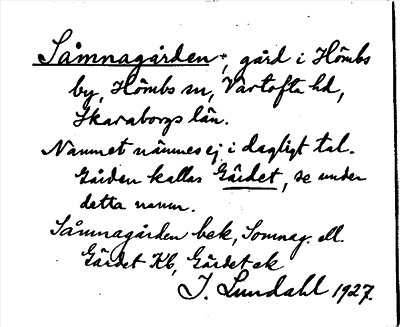 Såmnagården +, gård i Hömbs
by, Hömbs sn, Vartofta hd,
Skaraborgs län.
Namnet nämnes ej i dagligt tal.
Gården kallas Gärdet, se under
detta namn.
Såmnagården bek, Somnag. ell.
Gärdet Kb, Gärdet ek
J. Lundahl 1927.